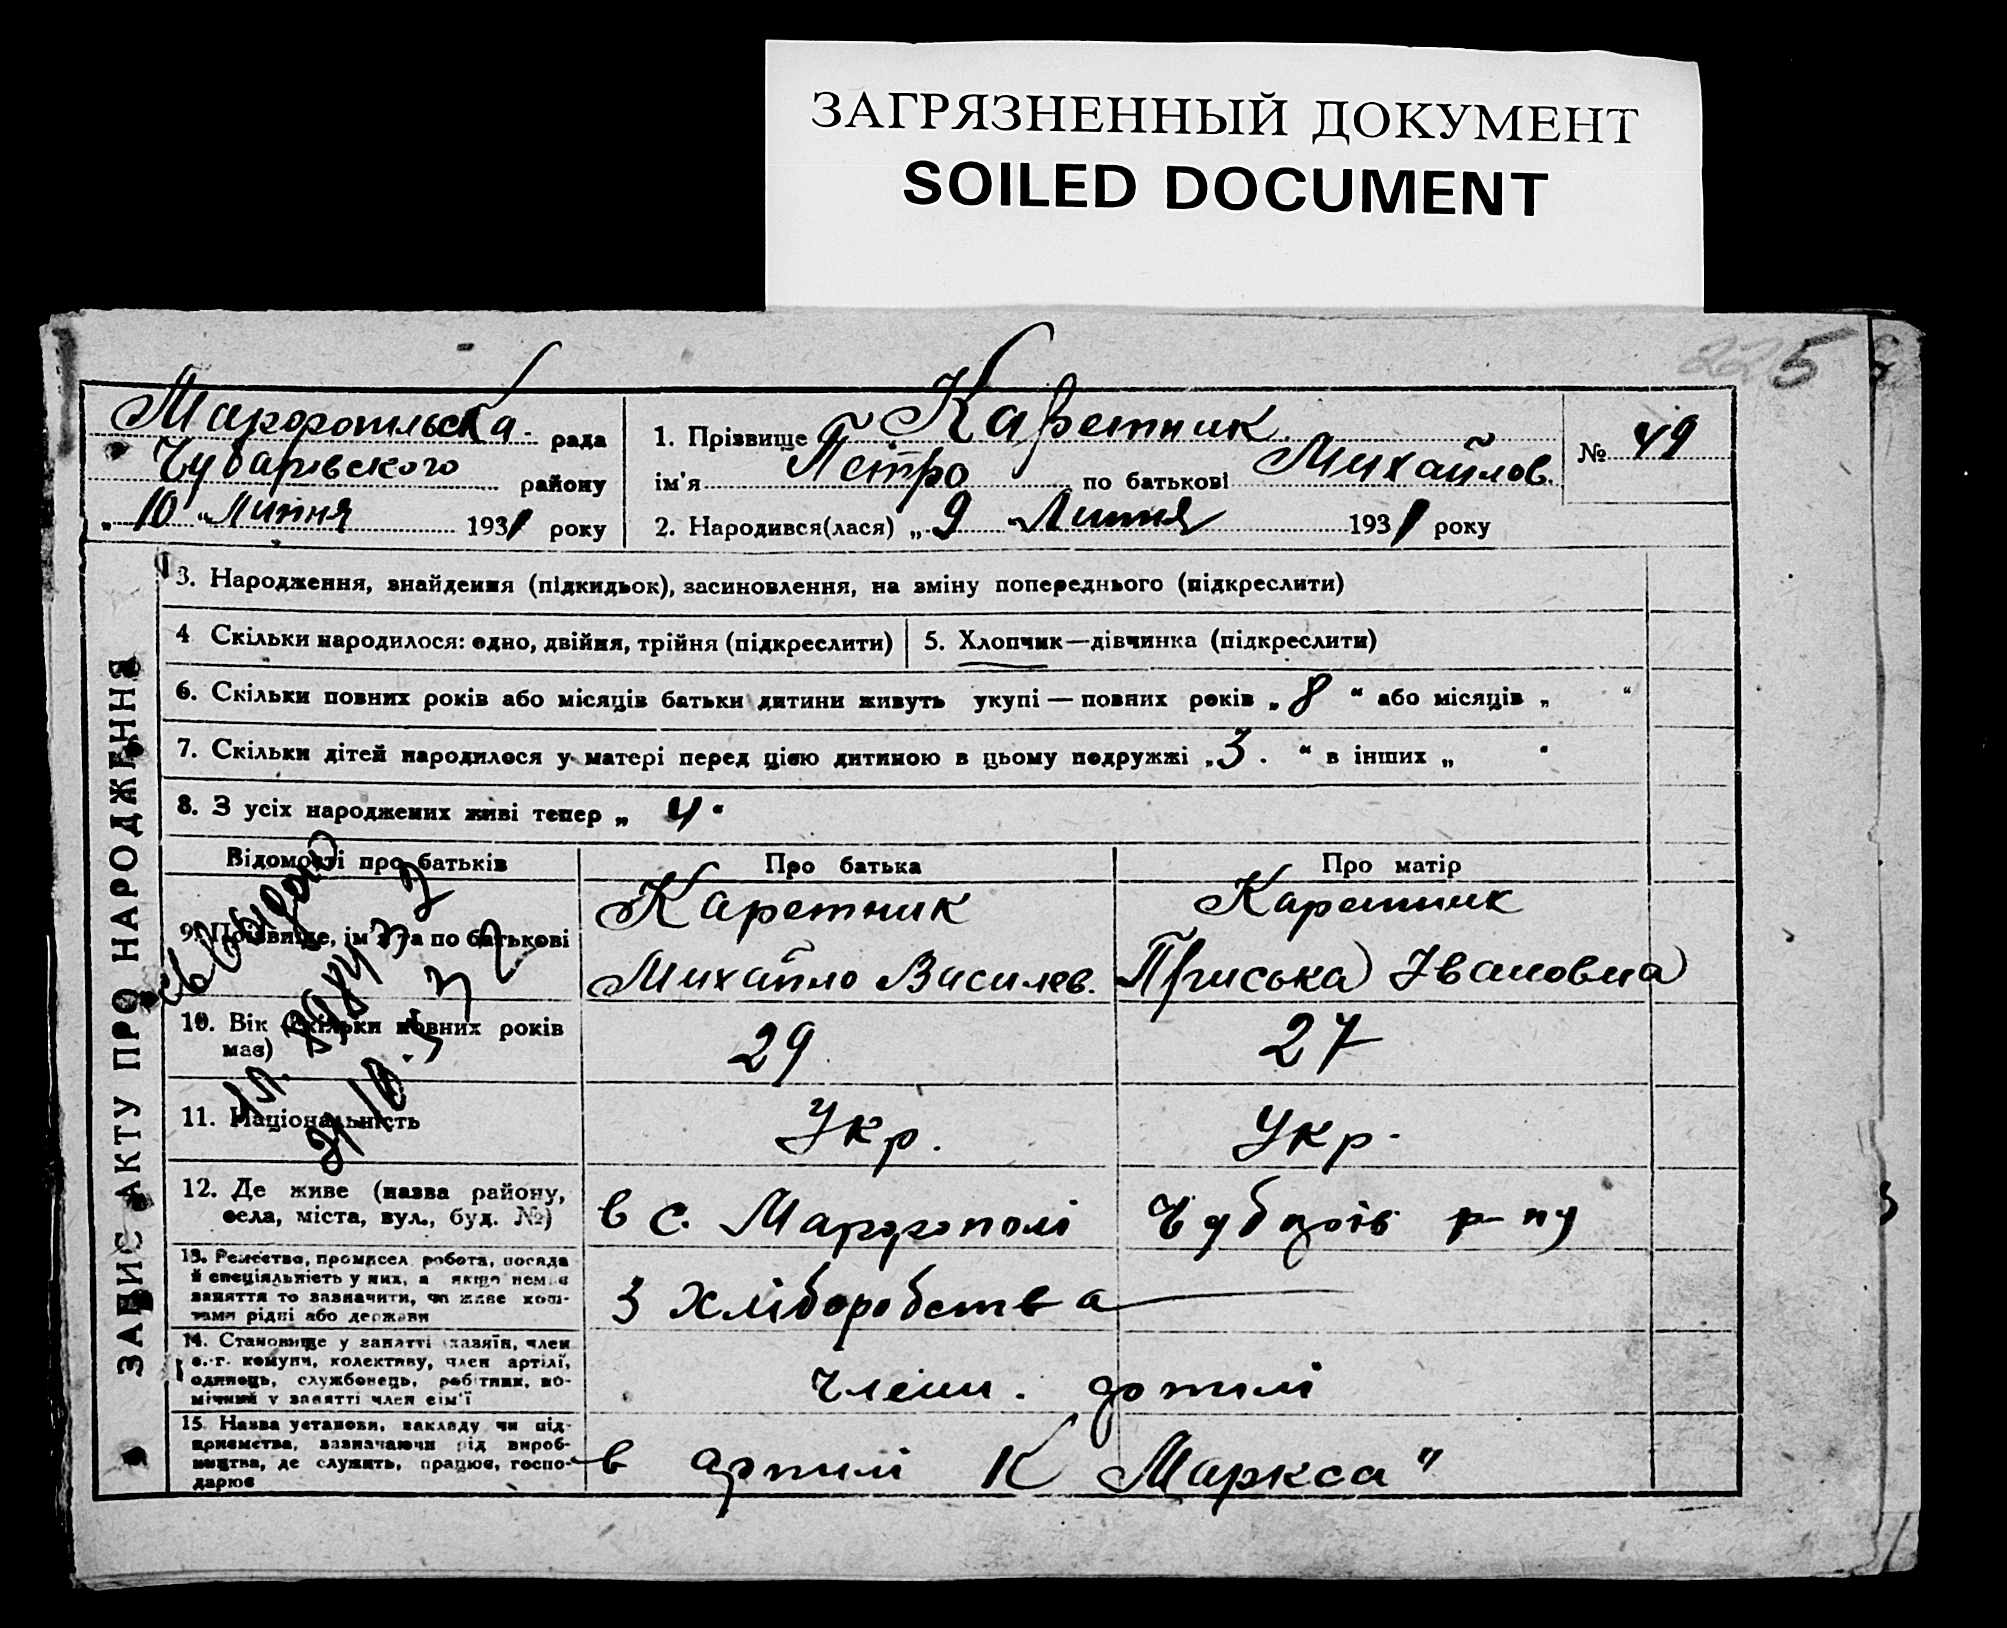 ЗАГРЯЗНЕННЫЙ ДОКУМЕНТ
SOILED DOCUMENT
225
ЗАПИС АКТУ ПРО НАРОДЖЕННЯ
рада
Чубарівського району
„10“ Липня 1931 року
1. Прізвище Каретник
ім'я Петро по батькові Михайлов.
№ 49
2. Народився(лася) „9“ Липня 1931 року
3. Народження, знайдення (підкидьок), засиновлення, на зміну попереднього (підкреслити)
4 Скільки народилося: одно, двійня, трійня (підкреслити)
5. Хлопчик—дівчинка (підкреслити)
6. Скільки повних років або місяців батьки дитини живуть укупі — повних років „8“ або місяців „ “
7. Скільки дітей народилося у матері перед цією дитиною в цьому подружжі „3.“ в інших „
8. З усіх народжених живі тепер „ 4.
Відомості про батьків
Про батька
Про матір
9. Прізвище, ім'я та по батькові
Каретник
Михайло Василев.
Каретник
Приська Івановна
10. Вік (скільки повних років має)
29
27
11. Національність
Укр.
Укр.
12. Де живе (назва району,
села, міста, вул., буд. №)
в с. Марфополі Чубарів р-ну
13. Ремество, промисел робота, посада
й спеціяльність у них, а якщо немає
заняття то зазначити, чи живе кош-
тами рідні або держави
З хліборобства
14. Становище у занятті хазяїн, член
с.-г. комуни, колективу, член артілі,
одинець, службовець, робітник, по-
мічний у занятті член сім'ї
члени артілі
15. Назва установи, закладу чи під-
приємства, зазначаючи рід вироб-
ництва, де служить, працює, госпо-
дарює
в артілі К Маркса"